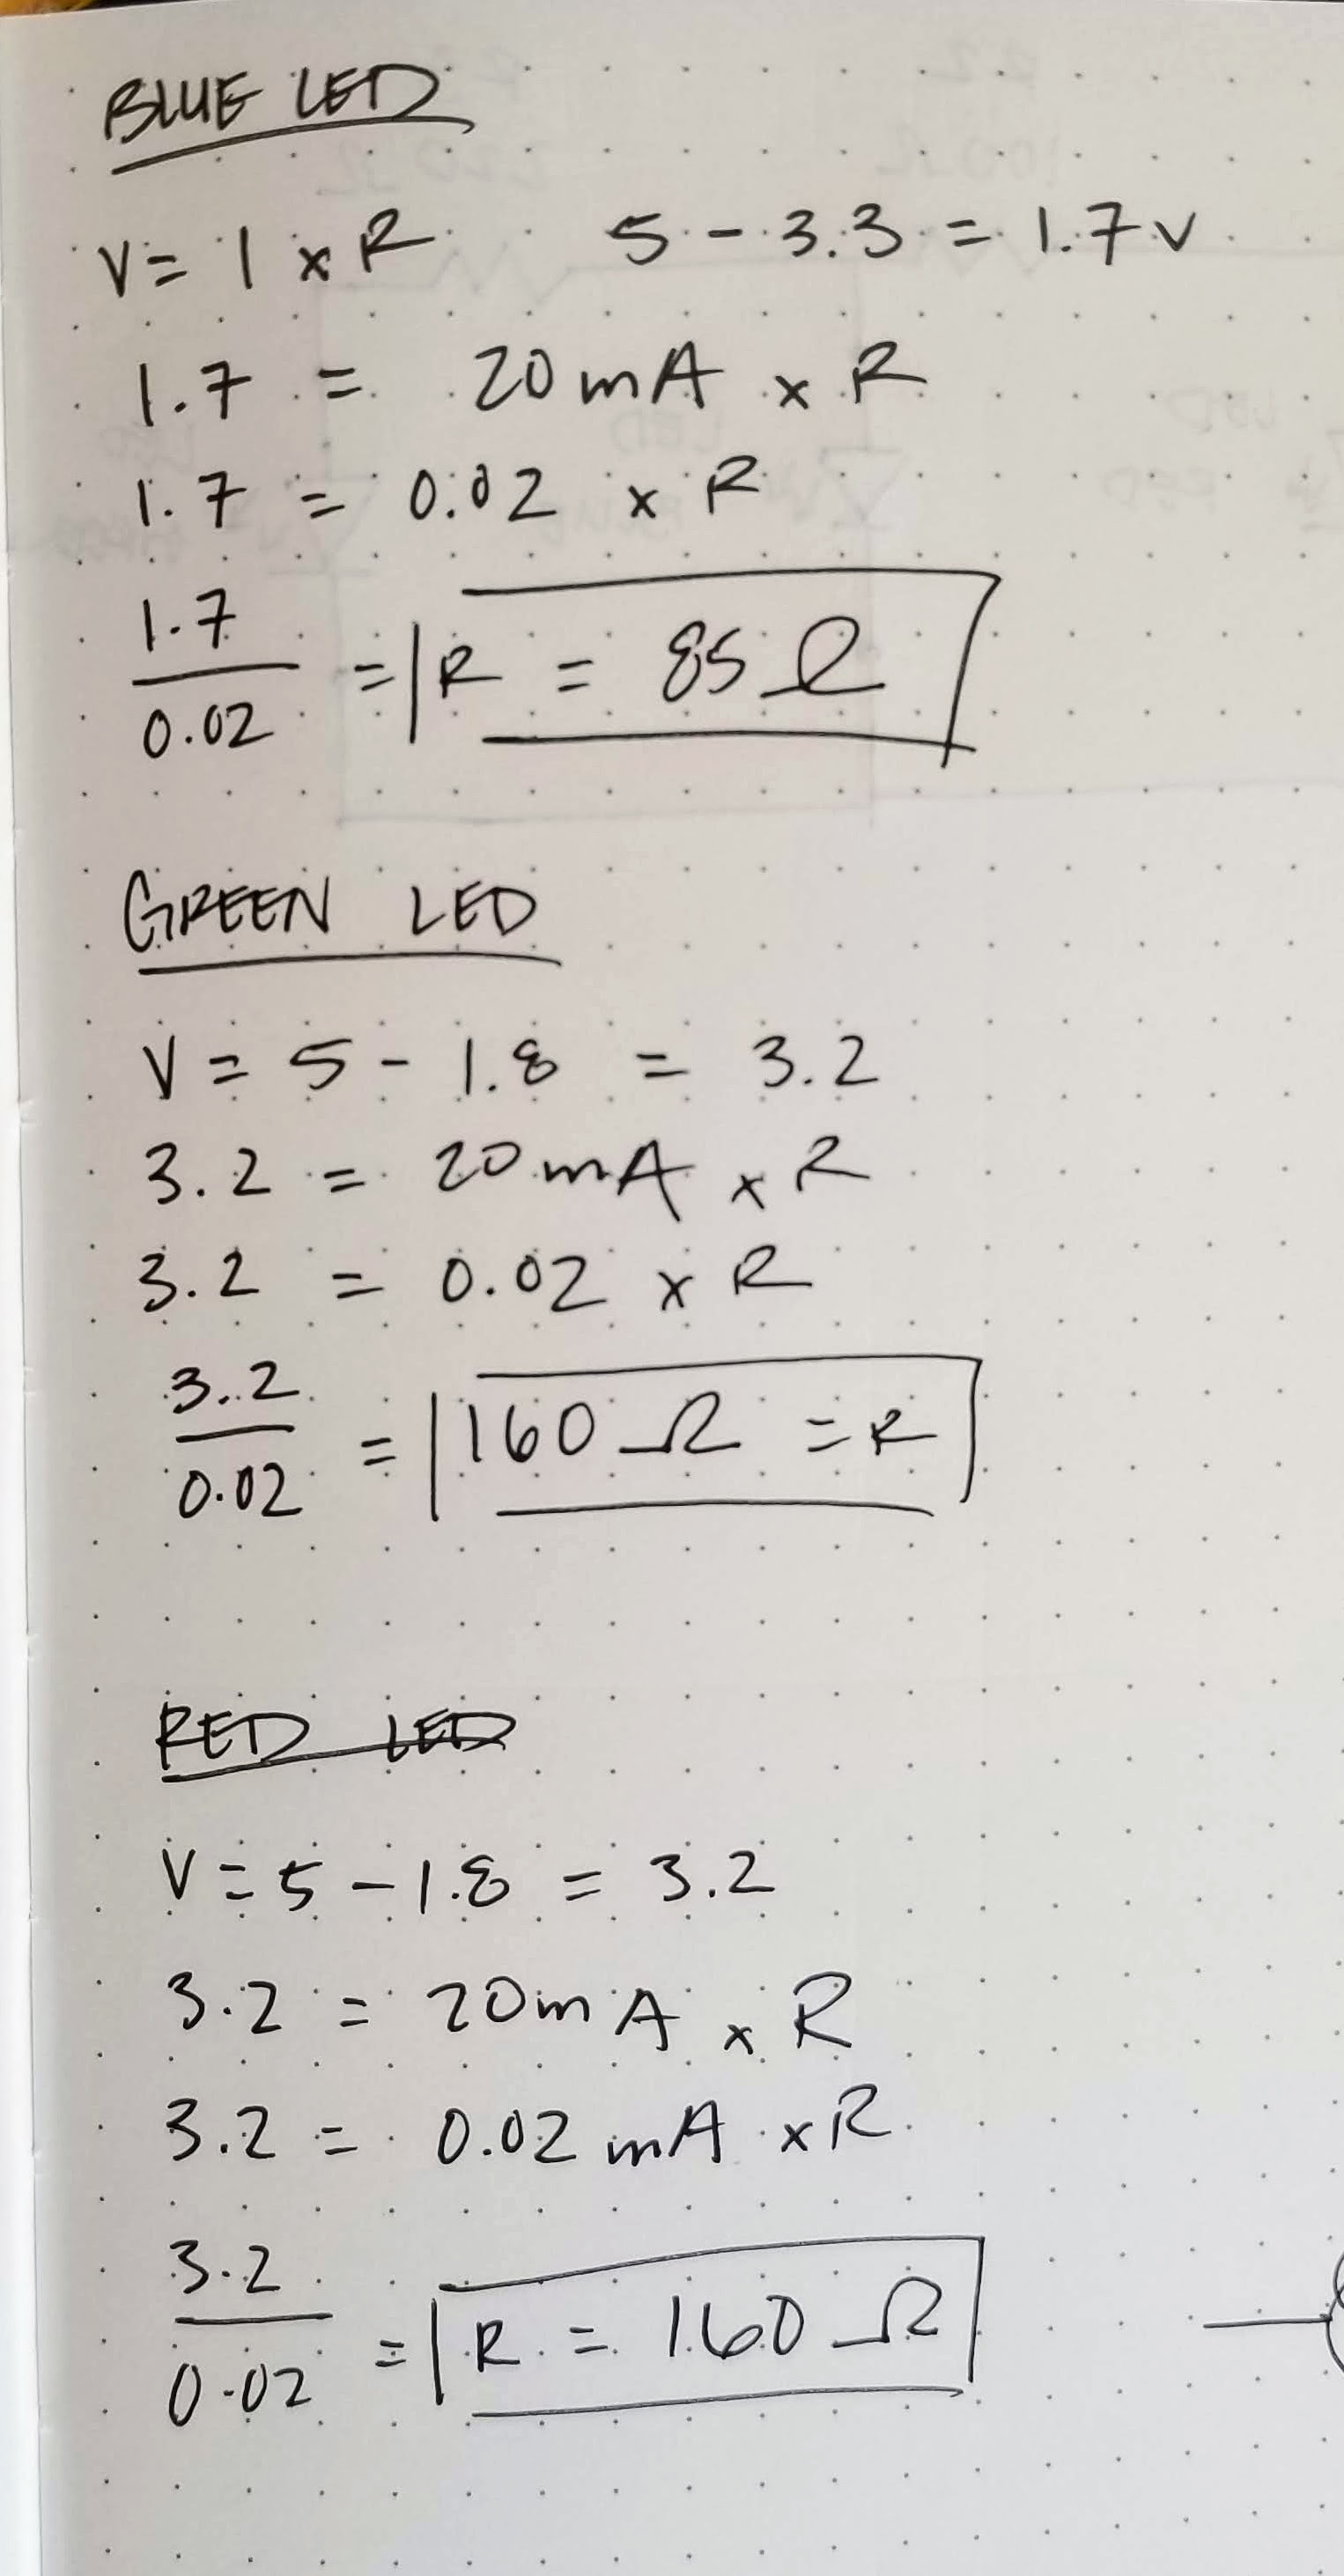 BLUE LED
V = I x R    5 - 3.3 = 1.7 v
1.7 = 20 mA x R
1.7 = 0.02 x R
1.7 / 0.02 = R = 85 Ω
GREEN LED
V = 5 - 1.8 = 3.2
3.2 = 20 mA x R
3.2 = 0.02 x R
3.2 / 0.02 = 160 Ω = R
RED LED
V = 5 - 1.8 = 3.2
3.2 = 20 mA x R
3.2 = 0.02 mA x R
3.2 / 0.02 = R = 160 Ω